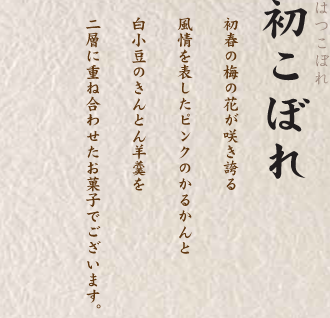 はつこぼれ
初こぼれ
初春の梅の花が咲き誇る
風情を表したピンクのかるかんと
白小豆のきんとん羊羹を
二層に重ね合わせたお菓子でございます。